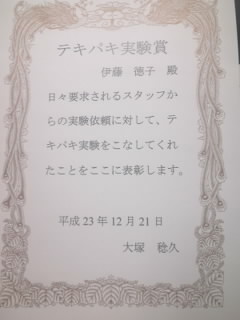 テキパキ実験賞
伊藤 徳子 殿
日々要求されるスタッフか
らの実験依頼に対して、テ
キパキ実験をこなしてくれ
たことをここに表彰します。
平成23年12月21日
大塚 稔久